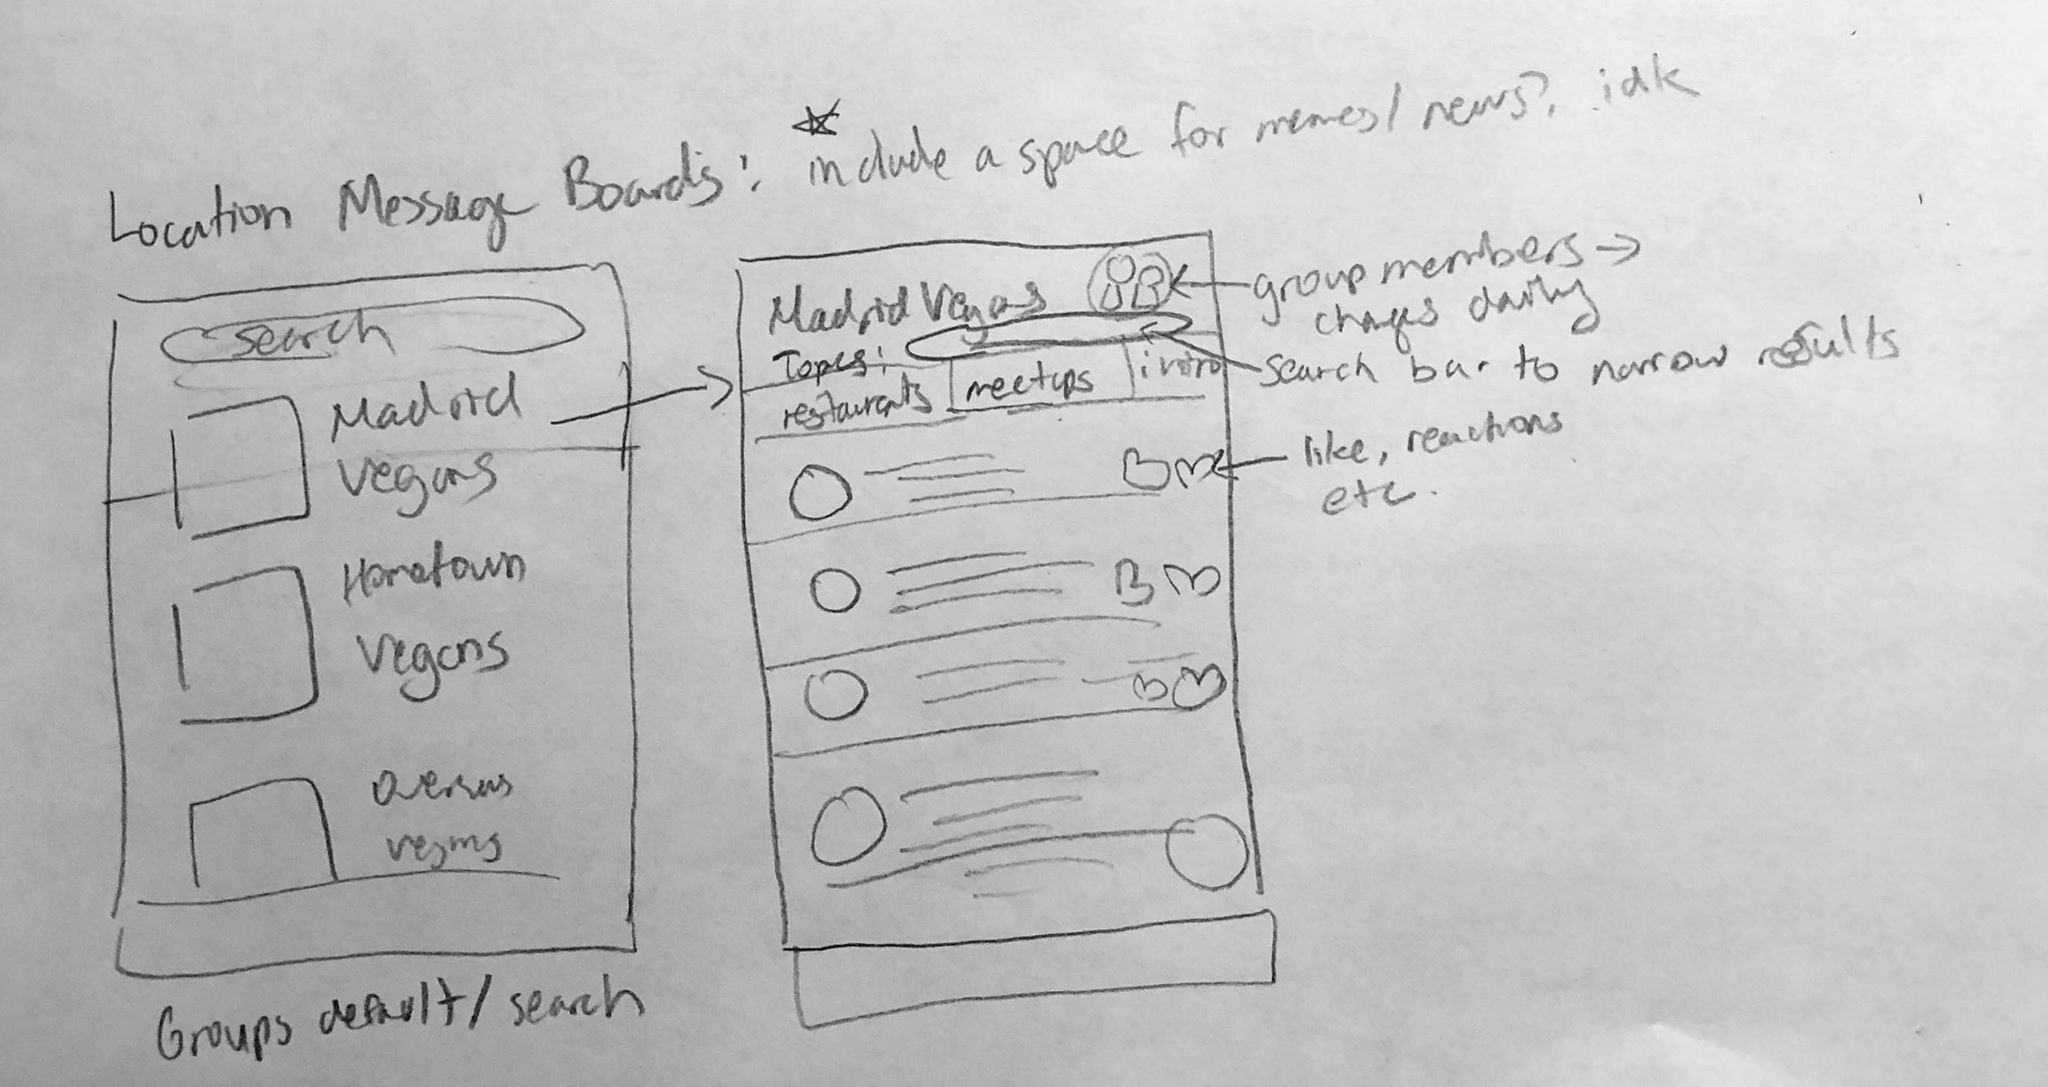 Location Message Boards:
include a space for memes/news? idk
search
Madrid
Vegans
Hometown
Vegans
Overseas
vegans
Groups default/search
Madrid Vegans
Topics:
restaurants
meetups
intro
group members →
changes daily
search bar to narrow results
like, reactions
etc.